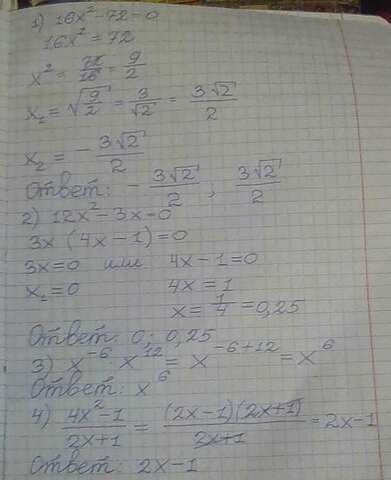 1) 16x² - 72 = 0
16x² = 72
x² = 72/16 = 9/2
x₁ = √(9/2) = 3/√2 = 3√2/2
x₂ = - 3√2/2
Ответ: - 3√2/2 ; 3√2/2
2) 12x² - 3x = 0
3x (4x - 1) = 0
3x = 0 или 4x - 1 = 0
x₁ = 0 4x = 1
x = 1/4 = 0,25
Ответ: 0; 0,25
3) x⁻⁶ x¹² = x⁻⁶⁺¹² = x⁶
Ответ: x⁶
4) (4x² - 1)/(2x + 1) = (2x - 1)(2x + 1)/(2x + 1) = 2x - 1
Ответ: 2x - 1